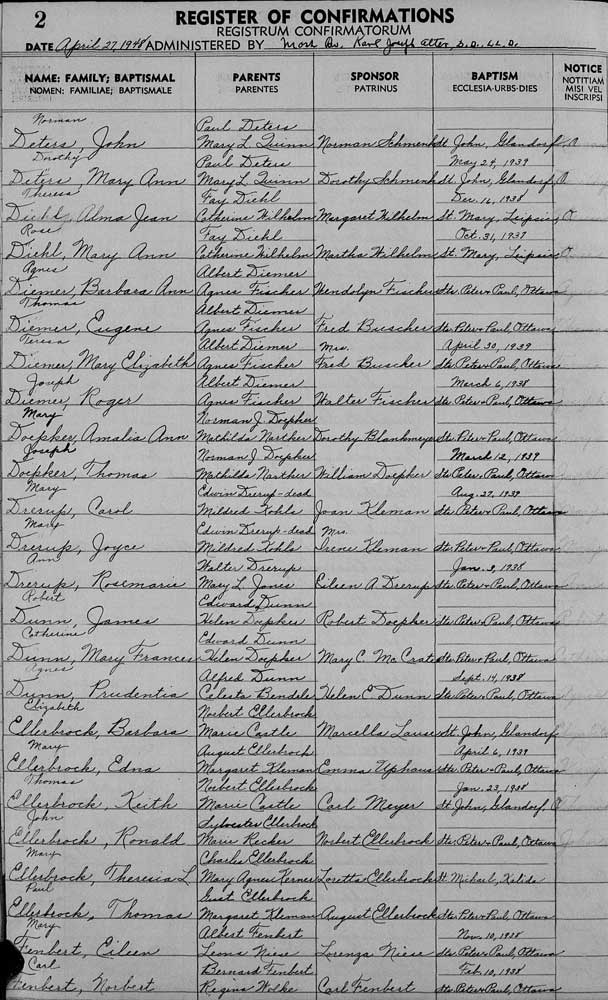 2
REGISTER OF CONFIRMATIONS
REGISTRUM CONFIRMATORUM
DATE April 27, 1948 ADMINISTERED BY Most Rv. Karl Joseph Alter, D.D., LL.D.
NAME: FAMILY; BAPTISMAL PARENTS SPONSOR BAPTISM NOTICE
NOMEN: FAMILIAE; BAPTISMALE PARENTES PATRINUS ECCLESIA-URBS-DIES NOTITIAM
MISI VEL
INSCRIPSI
Norman Paul Deters
Deters, John Mary L Quinn Norman Schmenk St. John, Glandorf
Dorothy Paul Deters May 24, 1939
Deters, Mary Ann Mary L. Quinn Dorothy Schmenk St. John, Glandorf
Theresa Fay Diehl Dec. 16, 1938
Diehl, Alma Jean Catherine Wilhelm Margaret Wilhelm St. Mary, Leipsic
Rose Fay Diehl Oct. 31, 1937
Diehl, Mary Ann Catherine Wilhelm Martha Wilhelm St. Mary, Leipsic
Agnes Albert Diemer
Diemer, Barbara Ann Agnes Fischer Wendolyn Fischer Sts. Peter & Paul, Ottawa
Thomas Albert Diemer
Diemer, Eugene Agnes Fischer Fred Buscher Sts. Peter & Paul, Ottawa
Teresa Albert Diemer Mrs. April 30, 1939
Diemer, Mary Elizabeth Agnes Fischer Fred Buscher Sts. Peter & Paul, Ottawa
Joseph Albert Diemer March 6, 1938
Diemer, Roger Agnes Fischer Walter Fischer Sts. Peter & Paul, Ottawa
Mary Norman J. Doepker
Doepker, Amalia Ann Mathilda Narther Dorothy Blankmeyer Sts. Peter & Paul, Ottawa
Joseph Norman J. Doepker March 12, 1939
Doepker, Thomas Mathilda Narther William Doepker Sts. Peter & Paul, Ottawa
Mary Edwin Drerup - dead Aug. 27, 1939
Drerup, Carol Mildred Kohls Joan Kleman Sts. Peter & Paul, Ottawa
Mary Edwin Drerup - dead Mrs.
Drerup, Joyce Mildred Kohls Irene Kleman Sts. Peter & Paul, Ottawa
Ann Walter Drerup Jan. 3, 1938
Drerup, Rosemarie Mary L. Jones Eileen A Drerup Sts. Peter & Paul, Ottawa
Robert Edward Dunn
Dunn, James Helen Doepker Robert Doepker Sts. Peter & Paul, Ottawa
Catherine Edward Dunn
Dunn, Mary Frances Helen Doepker Mary C. McCrate Sts. Peter & Paul, Ottawa
Agnes Alfred Dunn Sept. 14, 1938
Dunn, Prudentia Celesta Bendele Helen C Dunn Sts. Peter & Paul, Ottawa
Elizabeth Norbert Ellerbrock
Ellerbrock, Barbara Marie Castle Marcella St. John, Glandorf
Mary August Ellerbrock April 6, 1939
Ellerbrock, Edna Margaret Kleman Emma Uphaus Sts. Peter & Paul, Ottawa
Thomas Norbert Ellerbrock Jan. 23, 1938
Ellerbrock, Keith Marie Castle Carl Meyer St John, Glandorf, O
John Sylvester Ellerbrock
Ellerbrock, Ronald Marie Recker Norbert Ellerbrock Sts. Peter & Paul, Ottawa
Mary Charles Ellerbrock
Ellerbrock, Theresia L Mary Agnes Kerner Loretta Ellerbrock St. Michael, Kalida
Paul Gust Ellerbrock
Ellerbrock, Thomas Margaret Kleman August Ellerbrock Sts. Peter & Paul, Ottawa
Mary Albert Fenbert Nov. 10, 1938
Fenbert, Eileen Leona Niese Lorenza Niese Sts. Peter & Paul, Ottawa
Carl Bernard Fenbert Feb. 10, 1938
Fenbert, Norbert Regina Wolke Carl Fenbert Sts. Peter & Paul, Ottawa